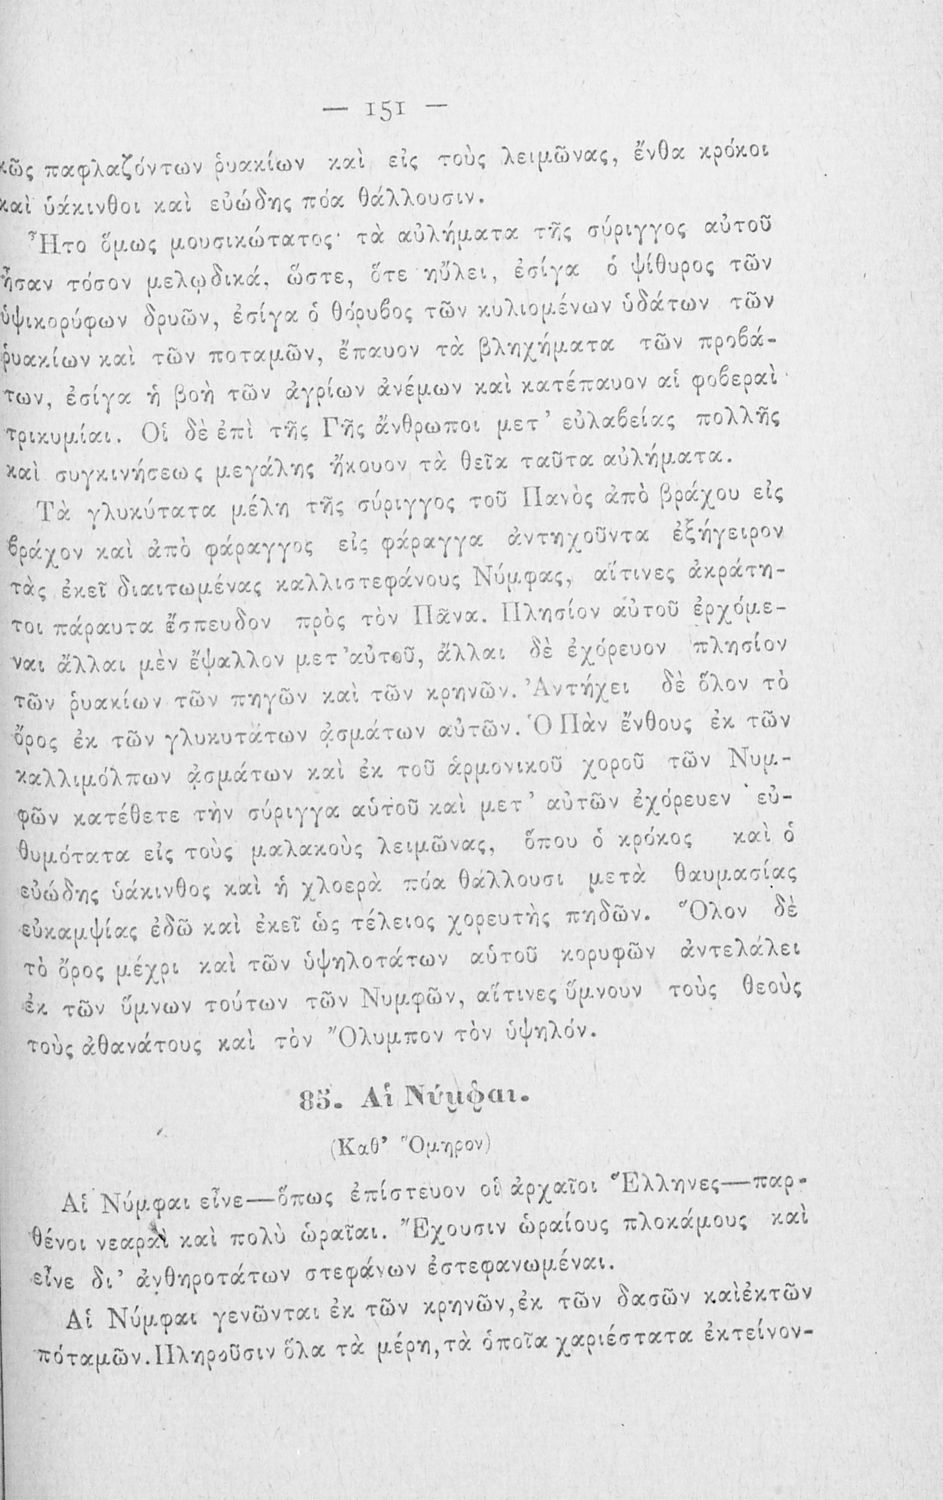 — 151 —
κῶς παφλαζόντων ῥυακίων καὶ εἰς τοὺς λειμῶνας, ἔνθα κρόκοι
καὶ ὑάκινθοι καὶ εὐώδης πόα θάλλουσιν.
Ἦτο ὅμως μουσικώτατος· τὰ αὐλήματα τῆς σύριγγος αὐτοῦ
ἦσαν τόσον μελῳδικά, ὥστε, ὅτε ηὔλει, ἐσίγα ὁ ψίθυρος τῶν
ὑψικορύφων δρυῶν, ἐσίγα ὁ θόρυβος τῶν κυλιομένων ὑδάτων τῶν
ῥυακίων καὶ τῶν ποταμῶν, ἔπαυον τὰ βληχήματα τῶν προβά-
των, ἐσίγα ἡ βοὴ τῶν ἀγρίων ἀνέμων καὶ κατέπαυον αἱ φοβεραὶ
τρικυμίαι. Οἱ δὲ ἐπὶ τῆς Γῆς ἄνθρωποι μετ' εὐλαβείας πολλῆς
καὶ συγκινήσεως μεγάλης ἤκουον τὰ θεῖα ταῦτα αὐλήματα.
Τὰ γλυκύτατα μέλη τῆς σύριγγος τοῦ Πανὸς ἀπὸ βράχου εἰς
βράχον καὶ ἀπὸ φάραγγος εἰς φάραγγα ἀντηχοῦντα ἐξήγειρον
τὰς ἐκεῖ διαιτωμένας καλλιστεφάνους Νύμφας, αἵτινες ἀκράτη-
τοι πάραυτα ἔσπευδον πρὸς τὸν Πᾶνα. Πλησίον αὐτοῦ ἐρχόμε-
ναι ἄλλαι μὲν ἔψαλλον μετ' αὐτοῦ, ἄλλαι δὲ ἐχόρευον πλησίον
τῶν ῥυακίων τῶν πηγῶν καὶ τῶν κρηνῶν. Ἀντήχει δὲ ὅλον τὸ
ὄρος ἐκ τῶν γλυκυτάτων ᾀσμάτων αὐτῶν. Ὁ Πὰν ἔνθους ἐκ τῶν
καλλιμόλπων ᾀσμάτων καὶ ἐκ τοῦ ἁρμονικοῦ χοροῦ τῶν Νυμ-
φῶν κατέθετε τὴν σύριγγα αὑτοῦ καὶ μετ' αὐτῶν ἐχόρευεν εὐ-
θυμότατα εἰς τοὺς μαλακοὺς λειμῶνας, ὅπου ὁ κρόκος καὶ ὁ
εὐώδης ὑάκινθος καὶ ἡ χλοερὰ πόα θάλλουσι μετὰ θαυμασίας
εὐκαμψίας ἐδῶ καὶ ἐκεῖ ὡς τέλειος χορευτὴς πηδῶν. Ὅλον δὲ
τὸ ὄρος μέχρι καὶ τῶν ὑψηλοτάτων αὑτοῦ κορυφῶν ἀντελάλει
ἐκ τῶν ὕμνων τούτων τῶν Νυμφῶν, αἵτινες ὕμνουν τοὺς θεοὺς
τοὺς ἀθανάτους καὶ τὸν Ὄλυμπον τὸν ὑψηλόν.
85. Αἱ Νύμφαι.
(Καθ' Ὅμηρον)
Αἱ Νύμφαι εἶνε—ὅπως ἐπίστευον οἱ ἀρχαῖοι Ἕλληνες—παρ-
θένοι νεαραὶ καὶ πολὺ ὡραῖαι. Ἔχουσιν ὡραίους πλοκάμους καὶ
εἶνε δι' ἀνθηροτάτων στεφάνων ἐστεφανωμέναι.
Αἱ Νύμφαι γενῶνται ἐκ τῶν κρηνῶν, ἐκ τῶν δασῶν καὶ ἐκ τῶν
πόταμῶν. Πληροῦσιν ὅλα τὰ μέρη, τὰ ὁποῖα χαριέστατα ἐκτείνον-